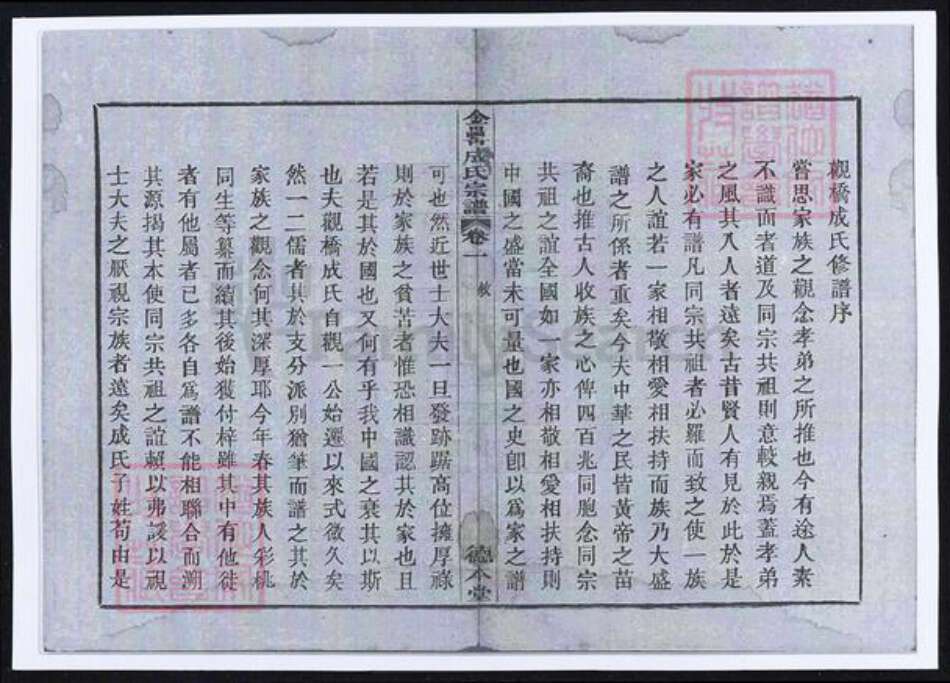 觀橋成氏修譜序
嘗思家族之觀念孝弟之所推也今有途人素
不識面者道及同宗共祖則意較親焉蓋孝弟
之風其入人者遠矣古昔賢人有見於此於是
家必有譜凡同宗共祖者必羅而致之使一族
之人誼若一家相敬相愛相扶持而族乃大盛
譜之所係者重矣今夫中華之民皆黃帝之苗
裔也推古人收族之心俾四百兆同胞念同宗
共祖之誼全國如一家亦相敬相愛相扶持則
中國之盛當未可量也國之史卽以爲家之譜
金沙成氏宗譜
卷一
敘
德本堂
可也然近世士大夫一旦發跡踞高位擁厚祿
則於家族之貧苦者惟恐相識認其於家也且
若是其於國也又何有乎我中國之衰其以斯
也夫觀橋成氏自觀一公始遷以來式微久矣
然一二儒者其於支分派別猶筆而譜之其於
家族之觀念何其深厚耶今年春其族人彩桃
同生等纂而續其後始獲付梓雖其中有他徙
者有他屬者已多各自爲譜不能相聯合而溯
其源揭其本使同宗共祖之誼賴以弗諼以視
士大夫之厭視宗族者遠矣成氏子姓苟由是